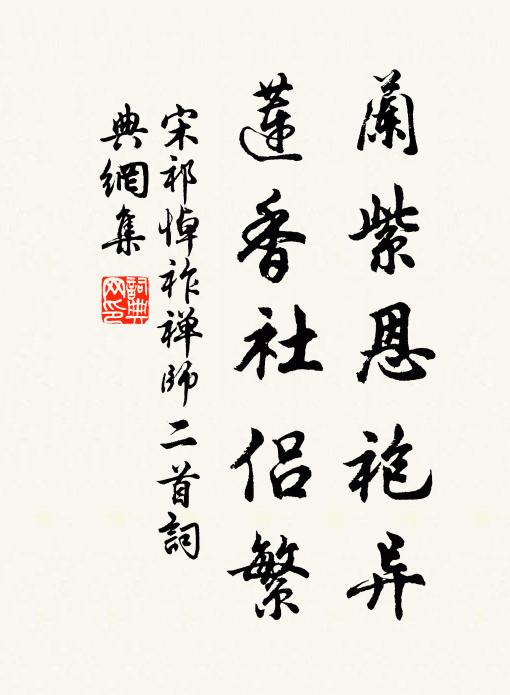 蘭紫恩袍异
蓮香社侣繁
宋祁悼祚禅師二首詞
典網集
詞典网印